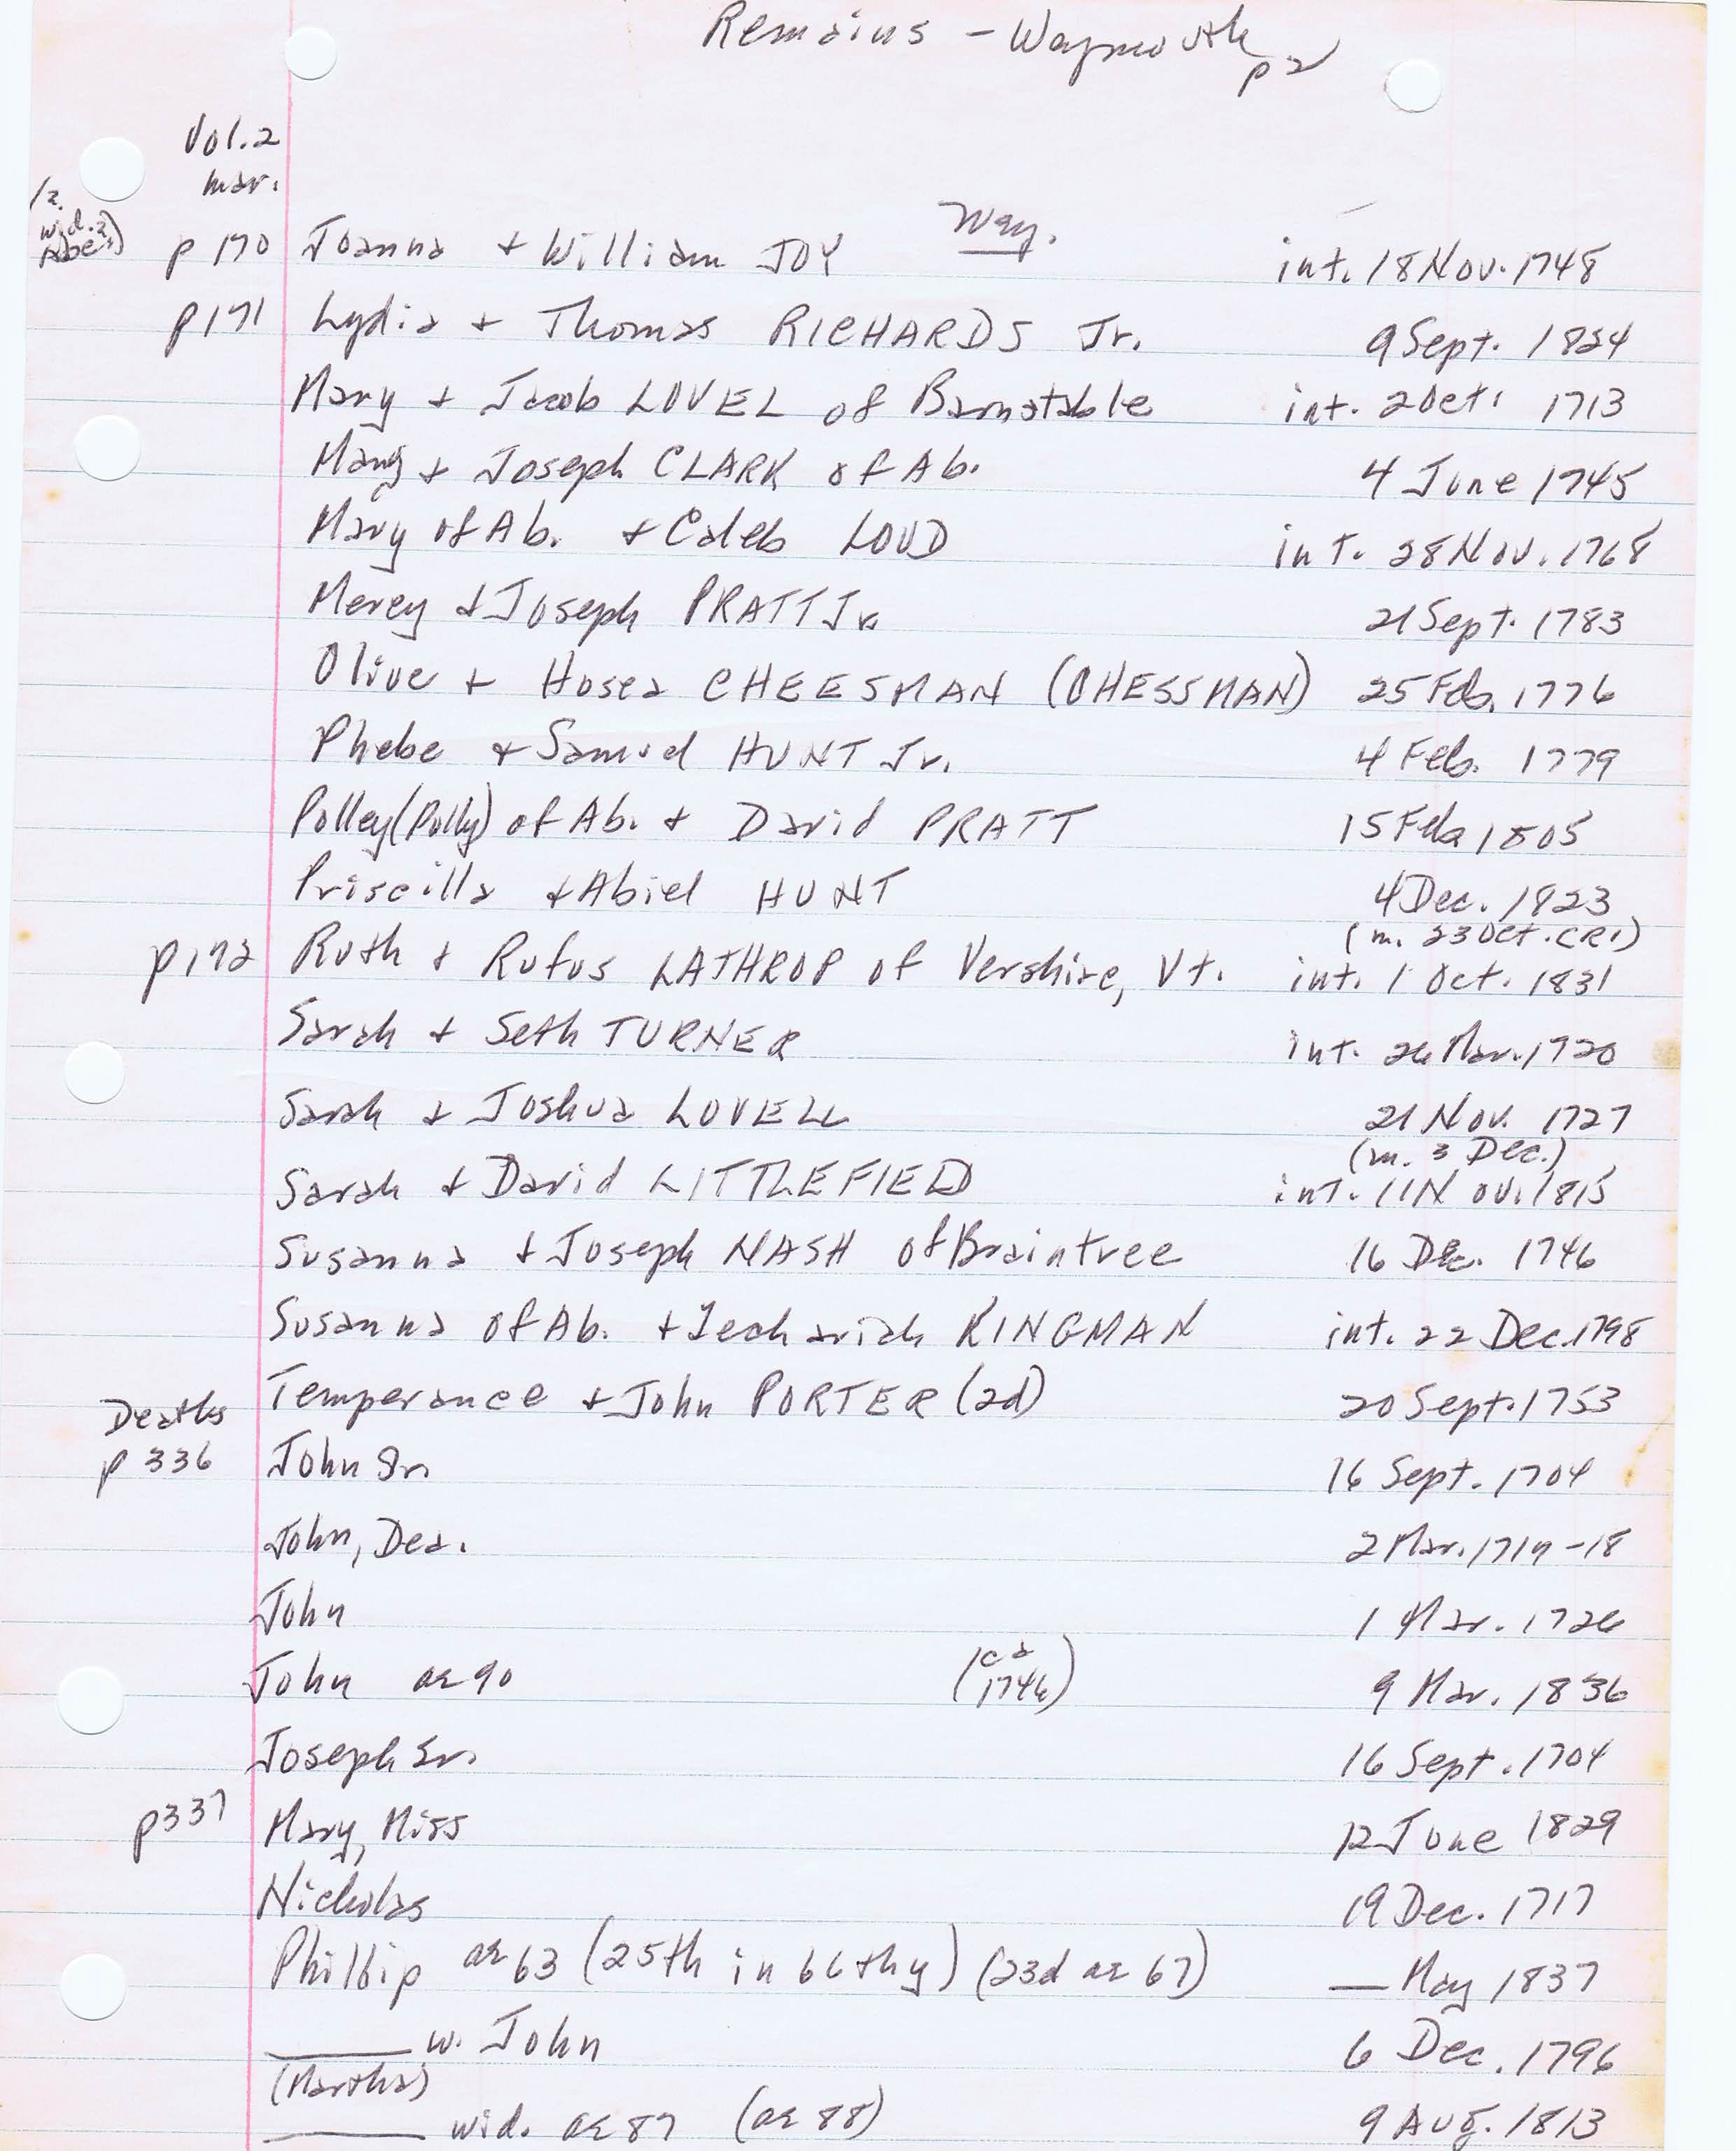 Remains - Waymouth
p 2
Vol. 2
mar.
Way.
p 170 Joanna + William JOY int. 18 Nov. 1748
p 171 Lydia + Thomas RICHARDS Jr. 9 Sept. 1824
Mary + Jacob LOVEL of Barnstable int. 2 Oct. 1713
Mary + Joseph CLARK of Ab. 4 June 1745
Mary of Ab. + Caleb LOUD int. 28 Nov. 1768
Mercy + Joseph PRATT Jr. 21 Sept. 1783
Olive + Hosea CHEESMAN (CHESSMAN) 25 Feb. 1776
Phebe + Samuel HUNT Jr. 4 Feb. 1779
Polley (Polly) of Ab. + David PRATT 15 Feb. 1805
Priscilla + Abiel HUNT 4 Dec. 1823
(m. 23 Oct. CR1)
p 172 Ruth + Rufus LATHROP of Vershire, Vt. int. 1 Oct. 1831
Sarah + Seth TURNER int. 26 Mar. 1720
Sarah + Joshua LOVELL 21 Nov. 1727
(m. 3 Dec.)
Sarah + David LITTLEFIELD int. 11 Nov. 1815
Susanna + Joseph NASH of Braintree 16 Dec. 1746
Susanna of Ab. + Zechariah KINGMAN int. 22 Dec. 1798
Temperance + John PORTER (2d) 20 Sept. 1753
Deaths
p 336 John Sr. 16 Sept. 1704
John, Dea. 2 Mar. 1717-18
John 1 Mar. 1726
John ae 90 (ca 1746) 9 Mar. 1836
Joseph Sr. 16 Sept. 1704
p 337 Mary, Miss 12 June 1829
Nicholas 19 Dec. 1717
Phillip ae 63 (25th in 66th y) (23d ae 67) — May 1837
____ w. John 6 Dec. 1796
(Martha)
____ wid. ae 87 (ae 88) 9 Aug. 1813